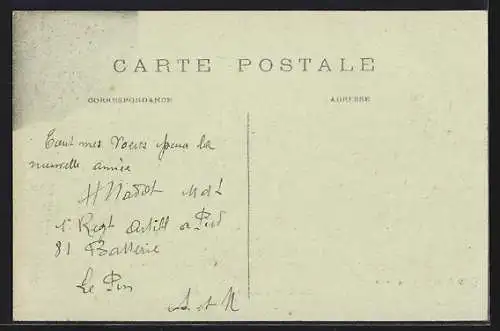 CARTE POSTALE
CORRESPONDANCE
ADRESSE
Tout mes Voeux pour la
nouvelle année
H Nadot Mdl
1e Regt Artill a Pied
81 Batterie
Le Pin
S et M